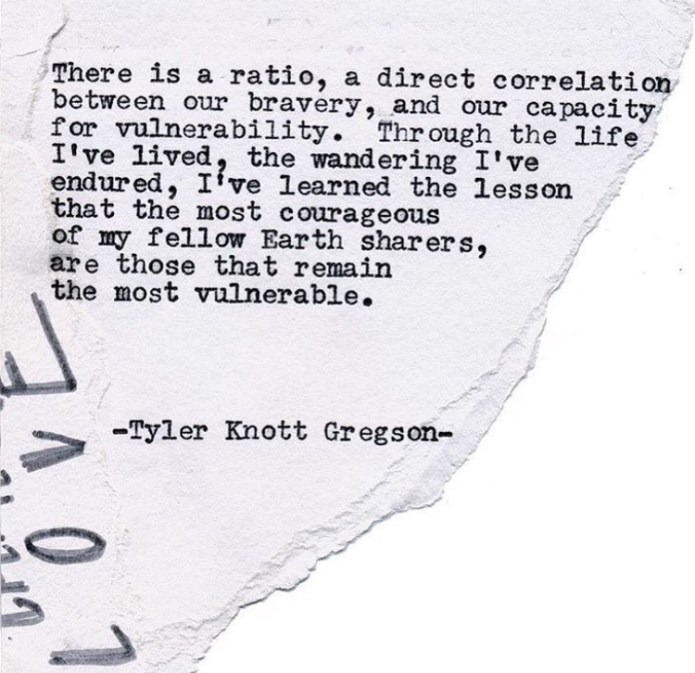 There is a ratio, a direct correlation
between our bravery, and our capacity
for vulnerability. Through the life
I've lived, the wandering I've
endured, I've learned the lesson
that the most courageous
of my fellow Earth sharers,
are those that remain
the most vulnerable.
-Tyler Knott Gregson-
LOVE